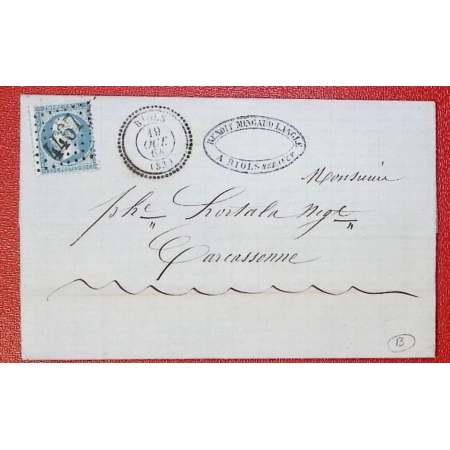 4467
RIOLS
19
OCT.
64
(33)
BENOIT MINGAUD LANGLE
A RIOLS HERAULT
Monsieur
phe Hortala Nege
Carcassonne
13